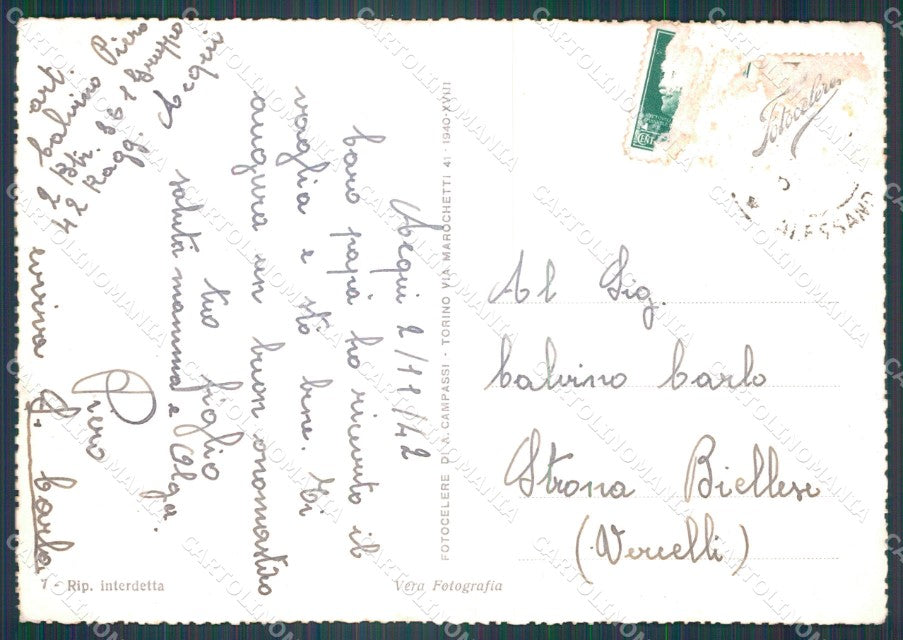 art. Calvino Piero
2 Btr. 861 Gruppo
42 Ragg. Acqui
Acqui 2/11/42
Caro papà ho ricevuto il
vaglia e sto bene. Ti
auguro un buon onomastico
tuo figlio
saluti mamma e Olga.
Piero
evviva S. Carlo
7 - Rip. interdetta
Vera Fotografia
FOTOCELERE DI A. CAMPASSI - TORINO VIA MAROCHETTI 41 - 1940-XVIII
Fotocelere
CENT
ALESSAND
Al Sig.
Calvino Carlo
Strona Biellese
(Vercelli)
CARTOLINOMANIA